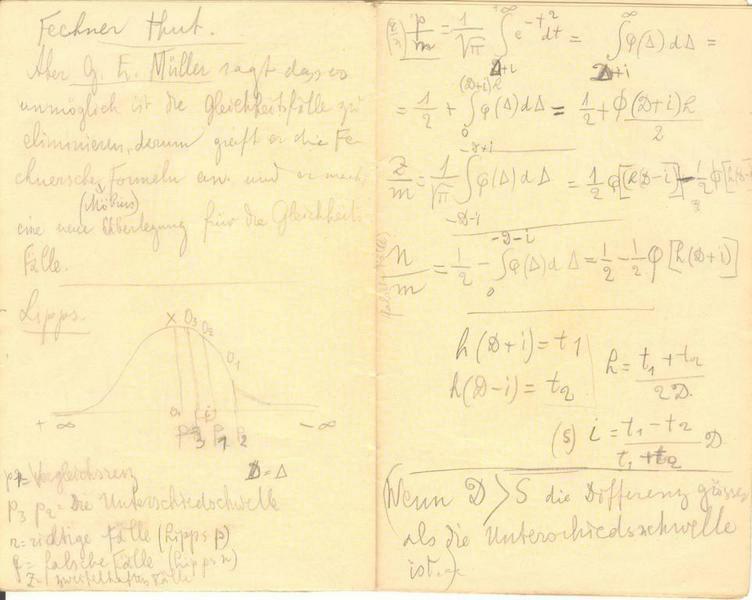 Fechner thut.
Aber G. E. Müller sagt dass es
unmöglich ist die Gleichheitsfälle zu
eliminieren, darum greift er die Fe-
chnersche Formeln an. und er macht
(Möbius)
eine neue Überlegung für die Gleichheits
Fälle.
Lipps.
X D3 D2 D1
+ ∞ − ∞
p 3 p 1 p 2
p1 = Vergleichsreiz D = Δ
p3 p2 = Die Unterschiedschwelle
r = richtige Fälle (Lipps p)
f = falsche Fälle (Lipps n)
Z = zweifelhaften Fälle
p/m = 1/√π ∫ e^-t² dt = ∫ φ(Δ) dΔ =
= 1/2 + ∫ φ(Δ) dΔ = 1/2 + φ(D+i)h/2
z/m = 1/√π ∫ φ(Δ) dΔ = 1/2 φ[h(D-i)] - 1/2 φ[h(D-
n/m = 1/2 - ∫ φ(Δ) dΔ = 1/2 - 1/2 φ[h(D+i)]
h(D+i) = t1
h(D-i) = t2
h = t1 + t2 / 2D.
(S) i = t1 - t2 / t1 + t2 D
(Wenn D > S die Differenz grösser
als die Unterschiedsschwelle
ist.